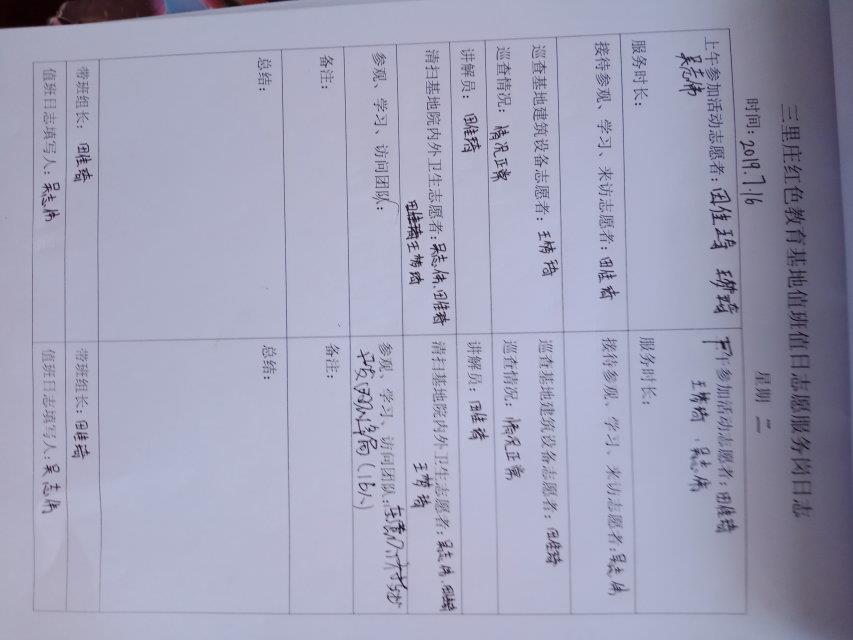 三里庄红色教育基地值班值日志愿服务岗日志
时间：2019.7.16 星期 二
上午参加活动志愿者：田佳琦 王梦琦
吴志伟
服务时长：
接待参观、学习、来访志愿者：田佳琦
巡查基地建筑设备志愿者：王梦琦
巡查情况：情况正常
讲解员：田佳琦
清扫基地院内外卫生志愿者：吴志伟、田佳琦
王梦琦
参观、学习、访问团队：
备注：
总结：
带班组长：田佳琦
值班日志填写人：吴志伟
下午参加活动志愿者：田佳琦
王梦琦、吴志伟
服务时长：
接待参观、学习、来访志愿者：吴志伟
巡查基地建筑设备志愿者：田佳琦
巡查情况：情况正常
讲解员：田佳琦
清扫基地院内外卫生志愿者：吴志伟、田佳琦
王梦琦
参观、学习、访问团队：
（16人）
备注：
总结：
带班组长：田佳琦
值班日志填写人：吴志伟